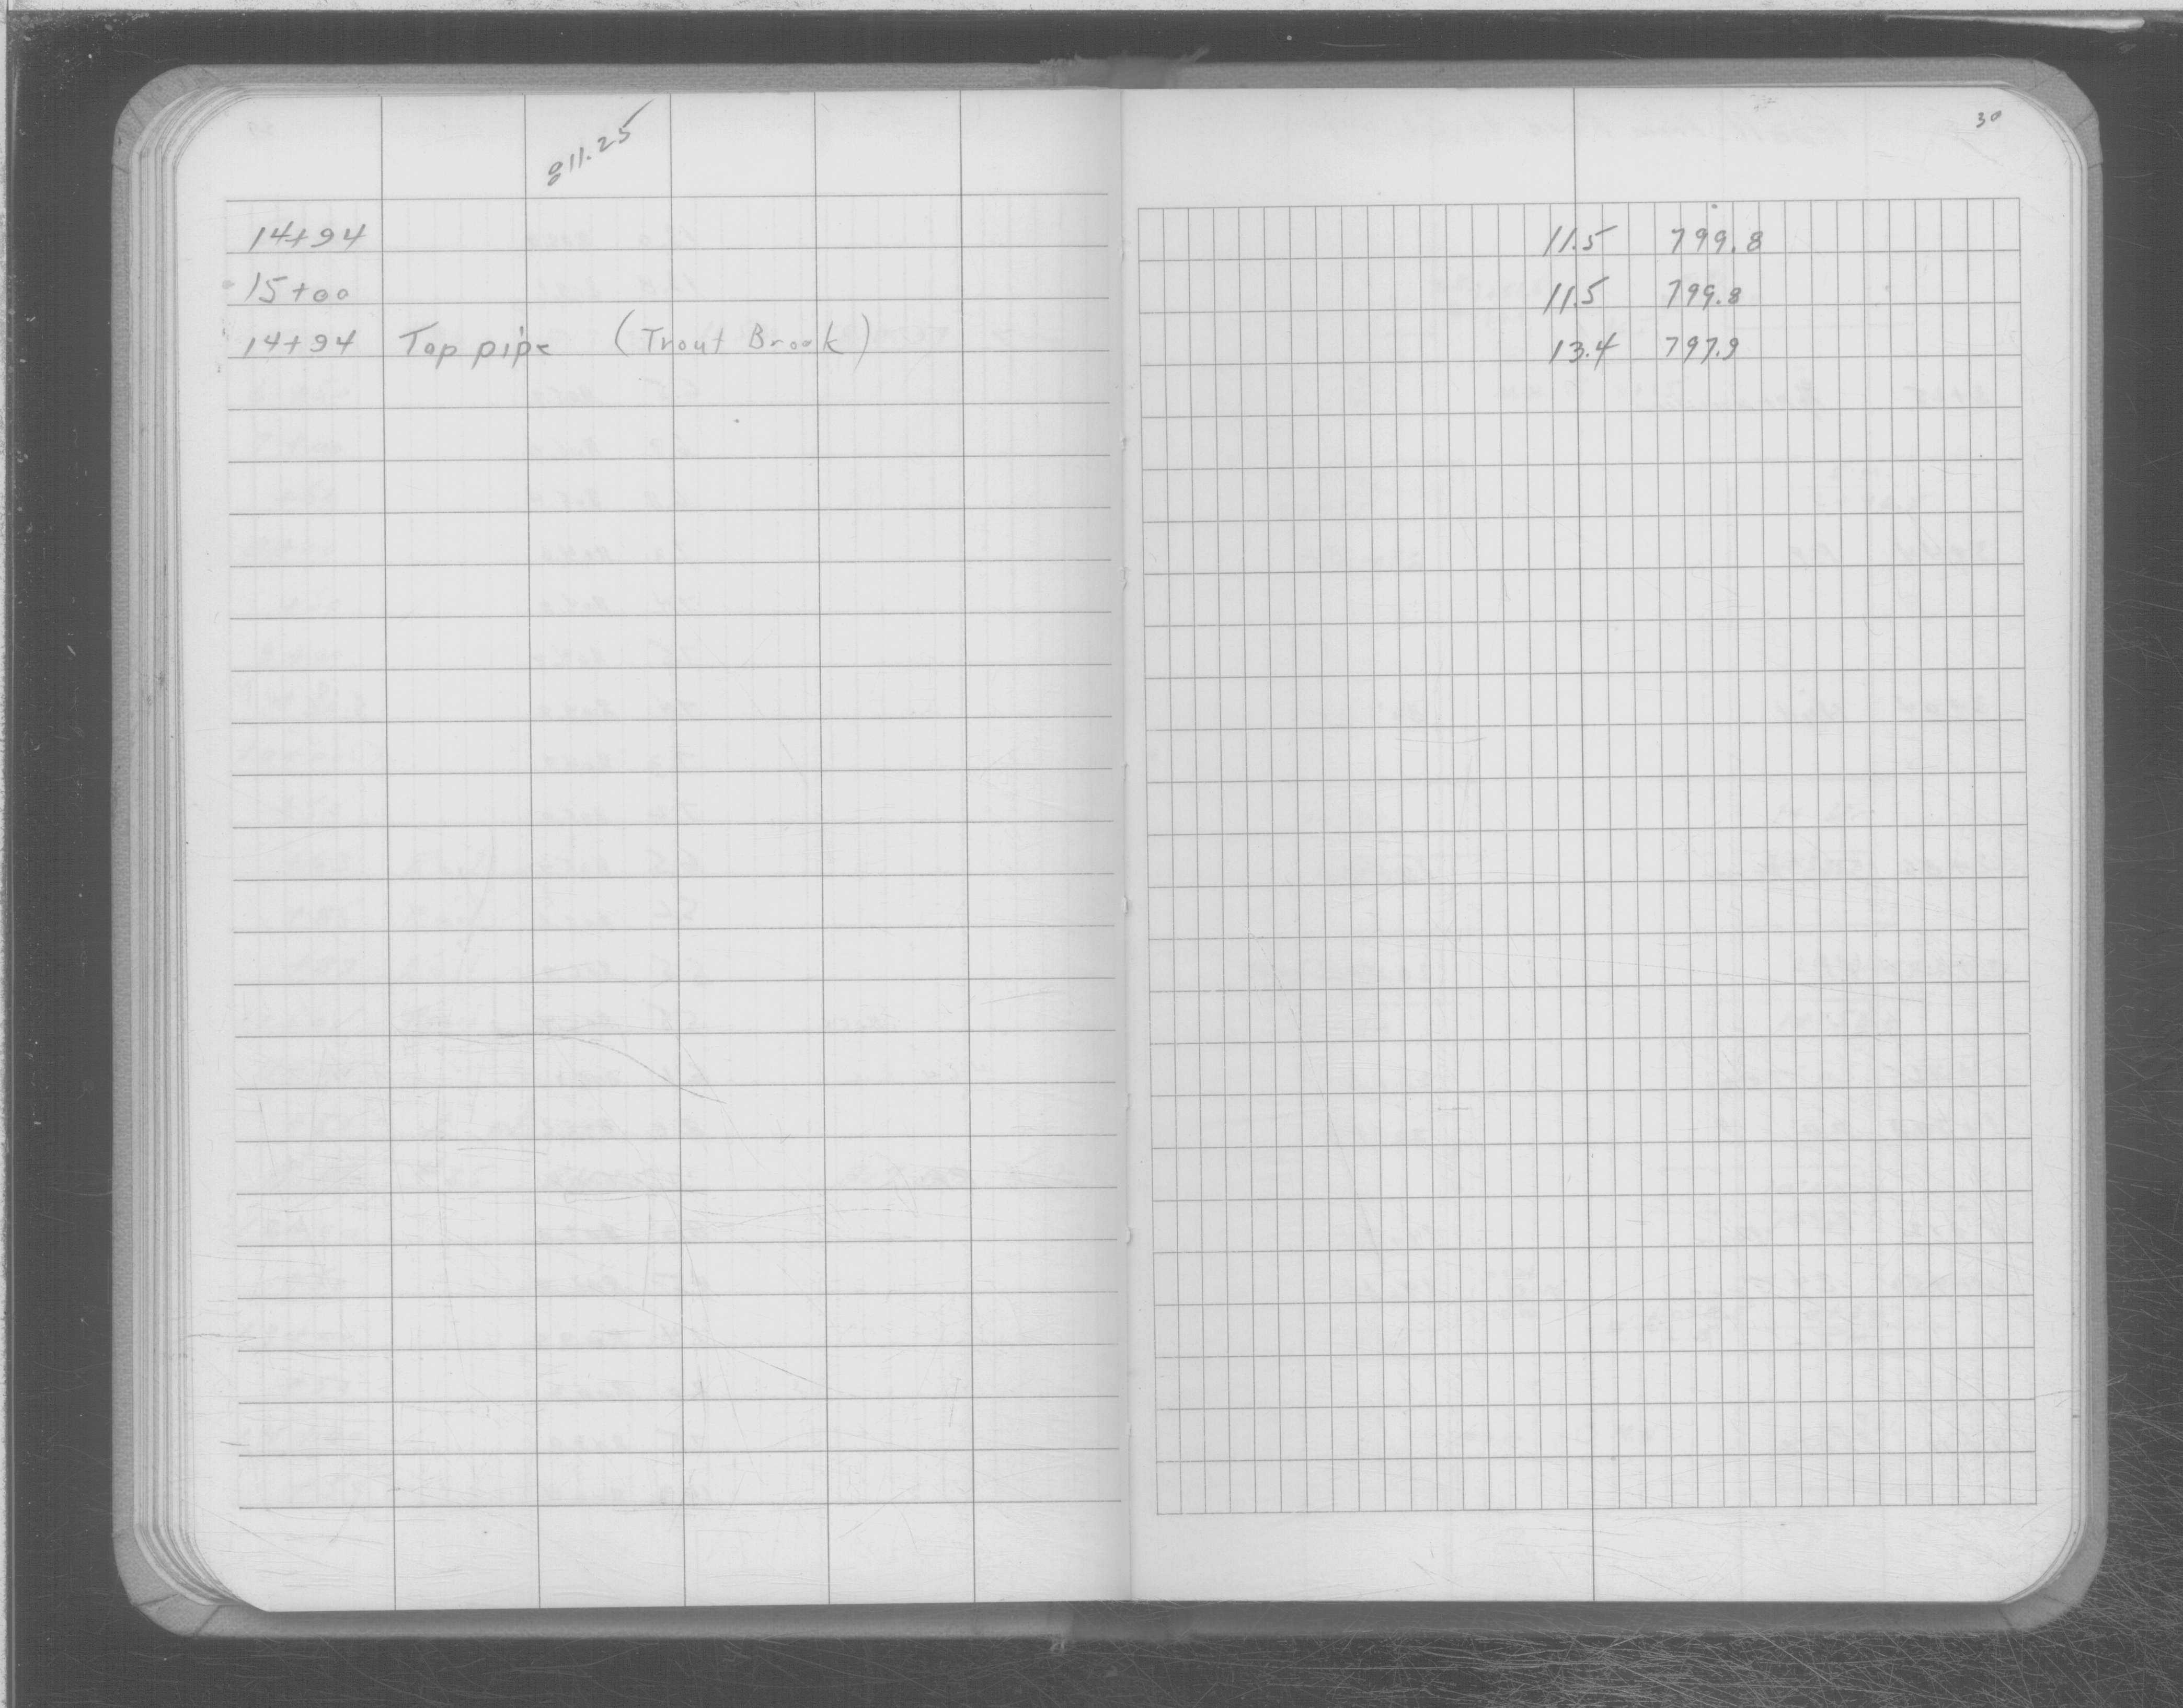 30
811.25
14+94 11.5 799.8
15+00 11.5 799.8
14+94 Top pipe (Trout Brook) 13.4 797.9